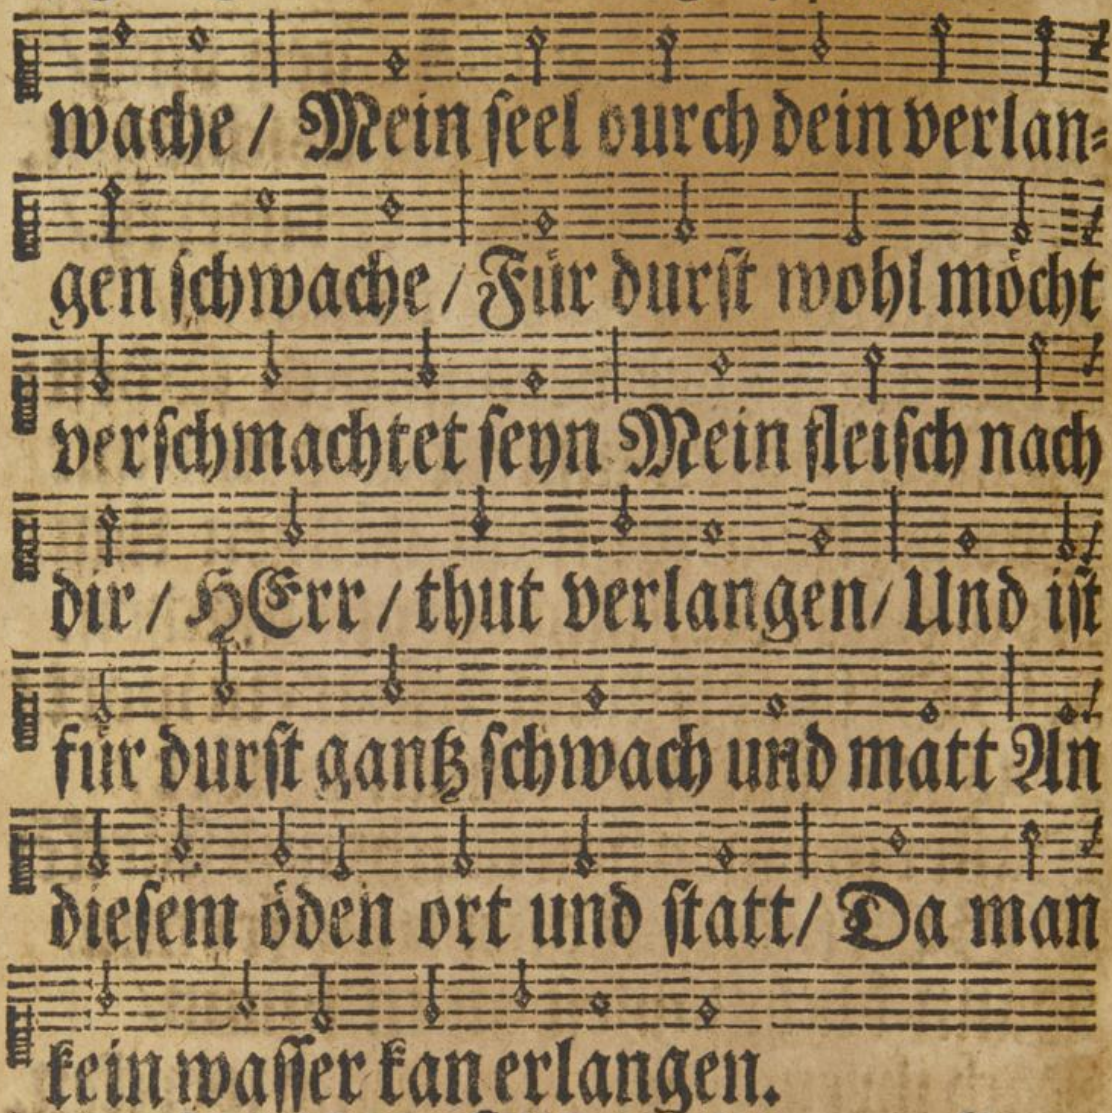 wache / Mein seel durch dein verlan⸗
gen schwache / Für durst wohl möcht
verschmachtet seyn Mein fleisch nach
dir / HErr / thut verlangen / Und ist
für durst gantz schwach und matt An
diesem öden ort und statt / Da man
kein wasser kan erlangen.